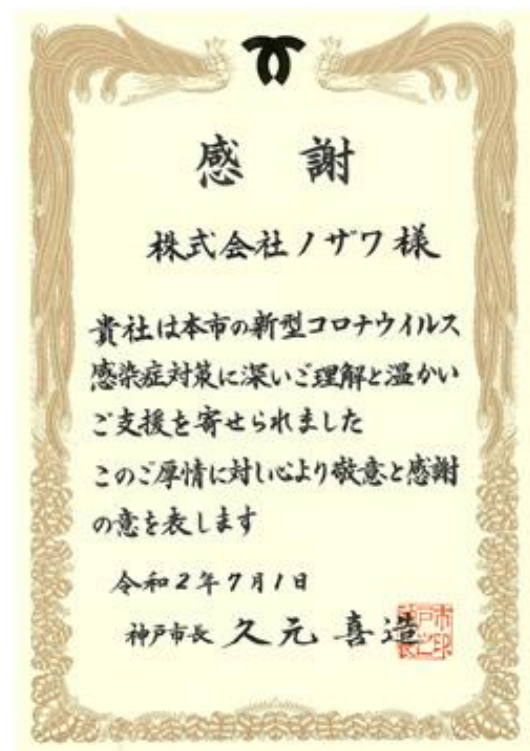 感謝
株式会社ノザワ様
貴社は本市の新型コロナウイルス
感染症対策に深いご理解と温かい
ご支援を寄せられました
このご厚情に対し心より敬意と感謝
の意を表します
令和2年7月1日
神戸市長 久元喜造